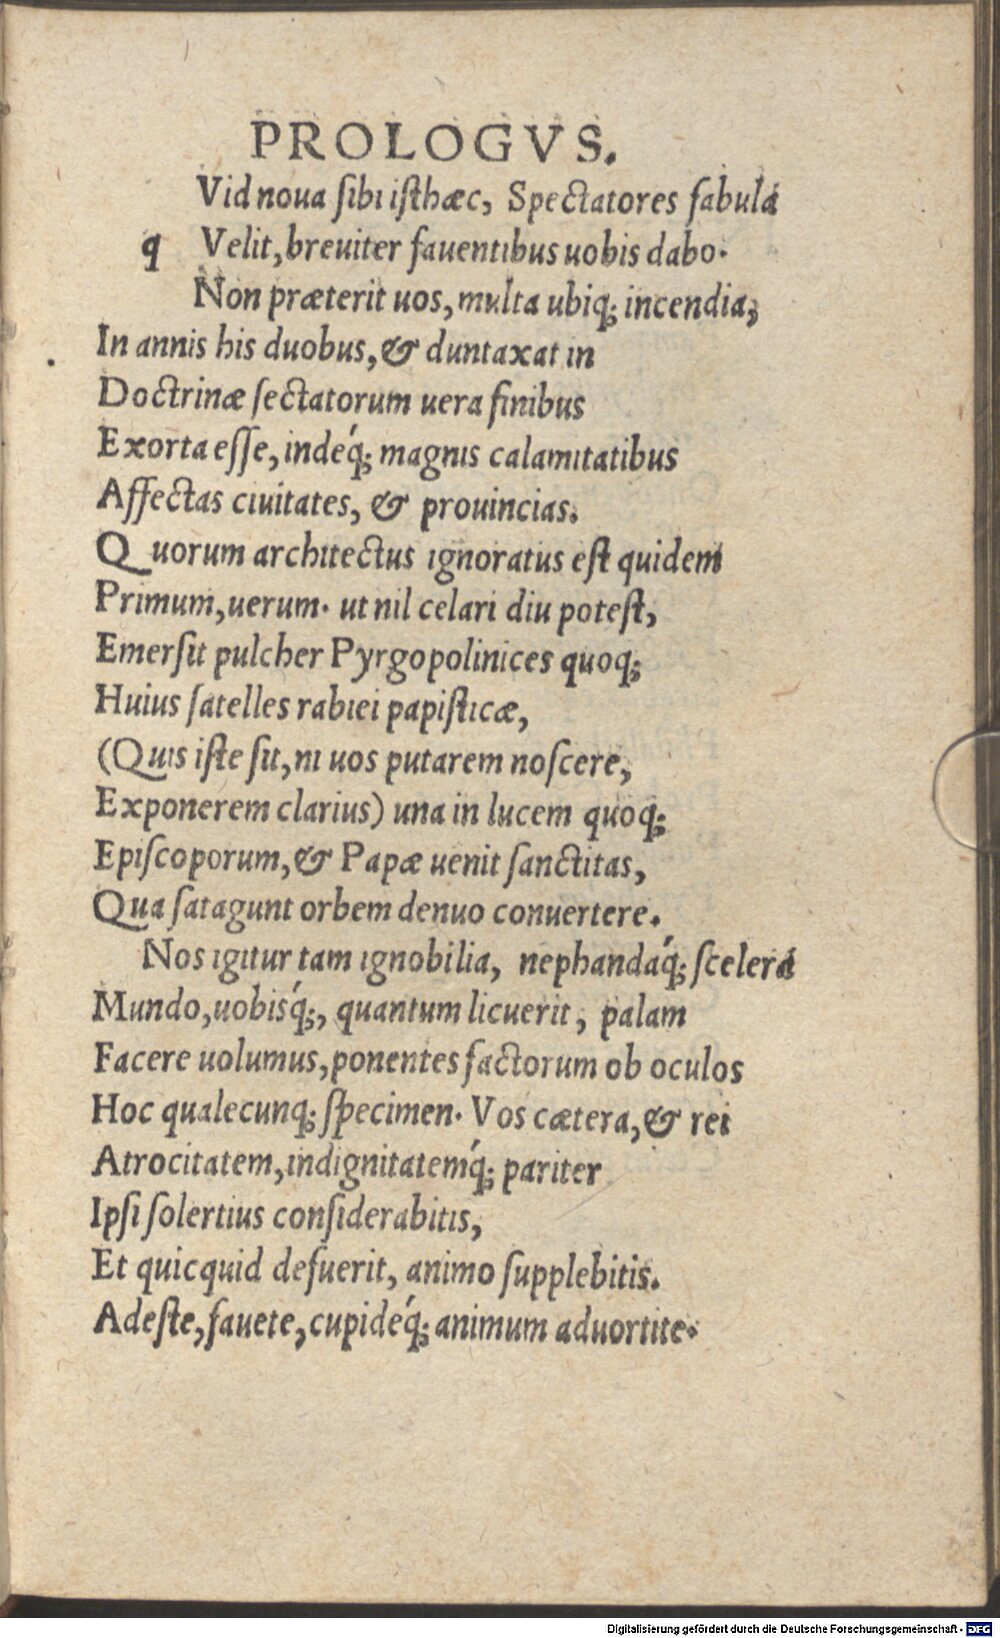 PROLOGVS.
Vid noua ſibi iſthæc, Spectatores fabula
q Velit, breuiter fauentibus uobis dabo.
Non præterit uos, multa ubiq; incendia,
In annis his duobus, & duntaxat in
Doctrinæ ſectatorum uera finibus
Exorta eſſe, indeq́; magnis calamitatibus
Affectas ciuitates, & prouincias.
Quorum architectus ignoratus eſt quidem
Primum, uerum. ut nil celari diu poteſt,
Emerſit pulcher Pyrgopolinices quoq;
Huius ſatelles rabiei papiſticæ,
(Quis iſte ſit, ni uos putarem noſcere,
Exponerem clarius) una in lucem quoq;
Epiſcoporum, & Papæ uenit ſanctitas,
Qua ſatagunt orbem denuo conuertere.
Nos igitur tam ignobilia, nephandaq́; ſcelera
Mundo, uobisq́;, quantum licuerit, palam
Facere uolumus, ponentes factorum ob oculos
Hoc qualecunq; ſpecimen. Vos cætera, & rei
Atrocitatem, indignitatemq́; pariter
Ipſi ſolertius conſiderabitis,
Et quicquid defuerit, animo ſupplebitis.
Adeſte, fauete, cupideq́; animum aduortite.
Digitalisierung gefördert durch die Deutsche Forschungsgemeinschaft - DFG